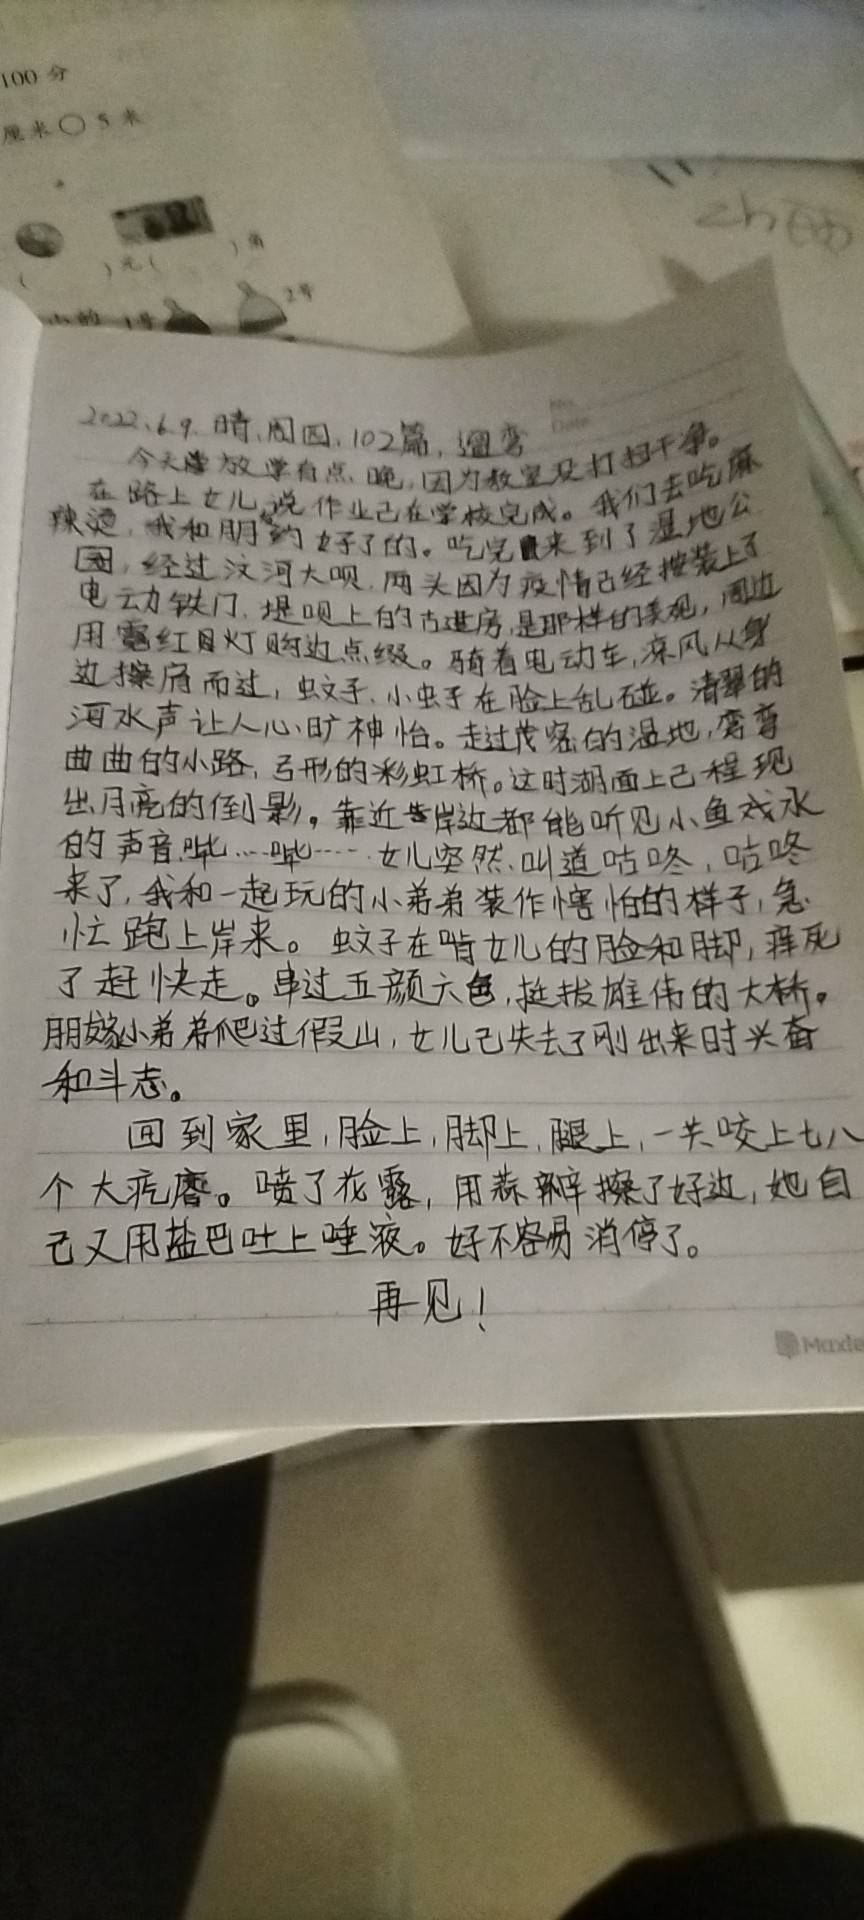 100 分
厘米○5米
( )元( )角
1号 2号
No.
Date
2022.6.9.晴,周四,102篇,遛弯
今天放学有点晚,因为教室没打扫干净。
在路上女儿说作业己在学校完成。我们去吃麻
辣烫,我和朋约好了的。吃完来到了湿地公
园,经过汶河大坝.两头因为疫情己经按装上了
电动铁门.堤坝上的古建房,是那样的美观,周边
用霓红灯购边点缀。骑着电动车,凉风从身
边擦肩而过,蚊子.小虫子在脸上乱碰。清翠的
河水声让人心旷神怡。走过茂密的湿地,弯弯
曲曲的小路,弓形的彩虹桥。这时湖面上己程现
出月亮的倒影。靠近岸边都能听见小鱼戏水
的声音.哔……哔…….女儿突然.叫道咕咚,咕咚
来了,我和一起玩的小弟弟装作害怕的样子,急
忙跑上岸来。蚊子在啃女儿的脸和脚,痒死
了赶快走。串过五颜六色,挺拔雄伟的大桥。
朋嫁小弟弟爬过假山,女儿己失去了刚出来时兴奋
和斗志。
回到家里,脸上,脚上,腿上,一共咬上七八
个大疙瘩。喷了花露,用蒜瓣擦了好边,她自
己又用盐巴吐上唾液。好不容易消停了。
再见!
Maxle